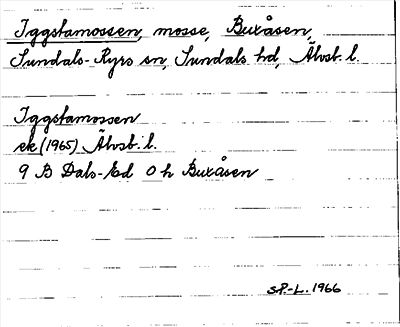 Iggstamossen, mosse, Buxåsen,
Sundals-Ryrs sn, Sundals hd, Älvsb. l.
Iggstamossen
ek (1965) Älvsb. l.
9 B Dals-Ed 0 h Buxåsen
S.P.-L. 1966